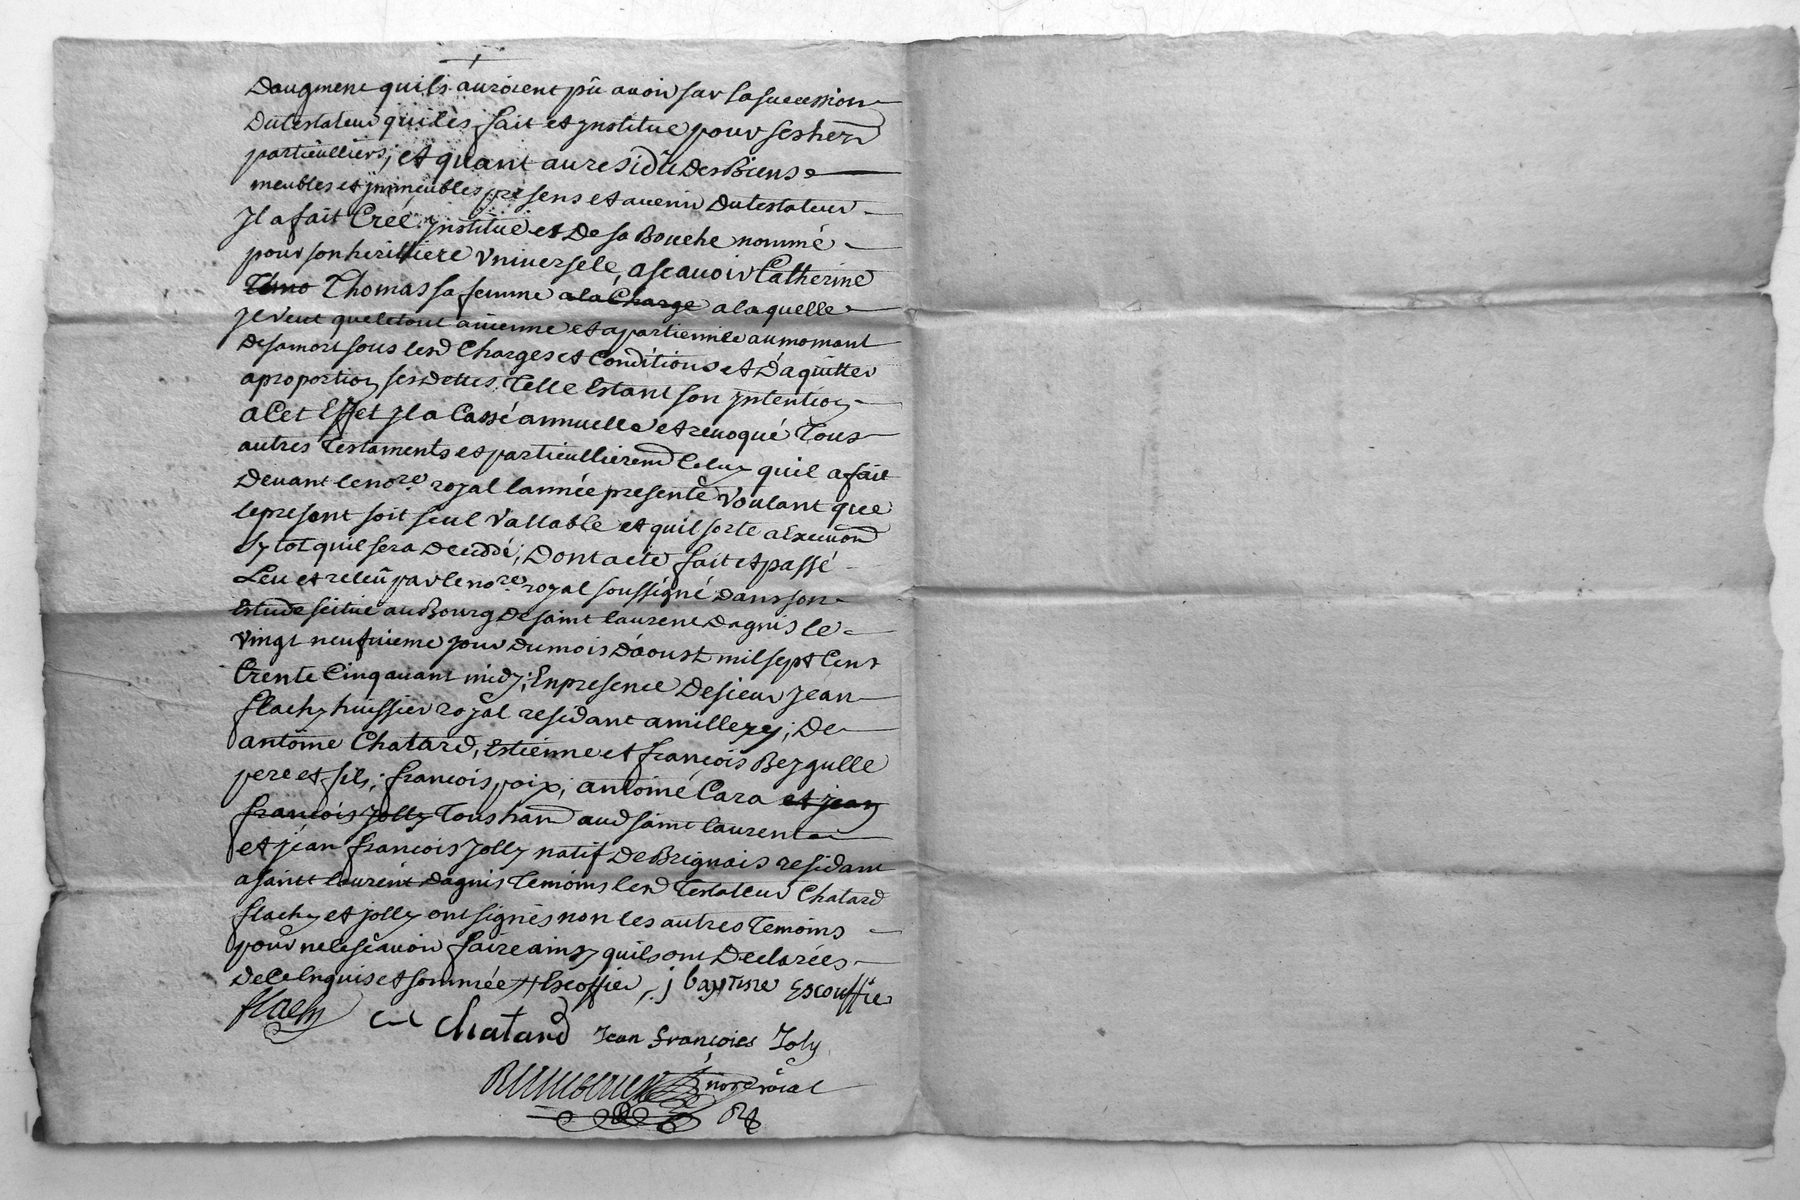 Daugment quils auroient pû avoir sur la succession
Dutestateur quil les fait et ynstitue pour ses herᵉˢ
particulliers; et quant au residû Des Biens
meubles et ymmeubles presens et avenir Dutestateur
Jl a fait Creé ynstitué et De sa Bouche nommé
pour son herittiere vniverselle, ascavoir Catherine
Thomas sa femme a la Charge a laquelle
jl veut que le tout avienne et apartienne au momant
De sa mort sous lesd Charges et Conditions et D'aquitter
aproportion ses Dettes, Telle Estant son yntention
a Cet Effet jl a Cassé annullé et revoqué Tous
autres Testaments et particullieremᵗ Celuy quil a fait
Devant le noʳᵉ royal lannée presente voulant que
le present soit seul vallable et quil sorte a Execuōn
sy tot quil sera Deceddé; Dont acte fait et passé
Leu et releû par le noʳᵉ royal soussigné Dans son
Estude scitué au Bourg De saint laurent Dagnis le
vingt neufvieme jour du mois D'aoust mil sept Cent
Trente Cinq avant midy; En presence De sieur jean
flachy huissier royal residant a millery; De
antoine Chatard, Estienne et francois Beygulle
pere et fils; francois poix; antoine Cara et jean
francois Jolly Tous hanᵗ aud saint laurent
et jean francois Jolly natif De Brignais residant
a saint laurent Dagnis Temoins lesd Testateur Chatard
flachy et jolly ont signés non les autres Temoins
pour ne le sçavoir faire ainsy quils ont Declarées
De ce Enquis et sommée Escoffier, j baptiste Escouffie
flachy Chatard Jean François Joly
noʳᵉ roial